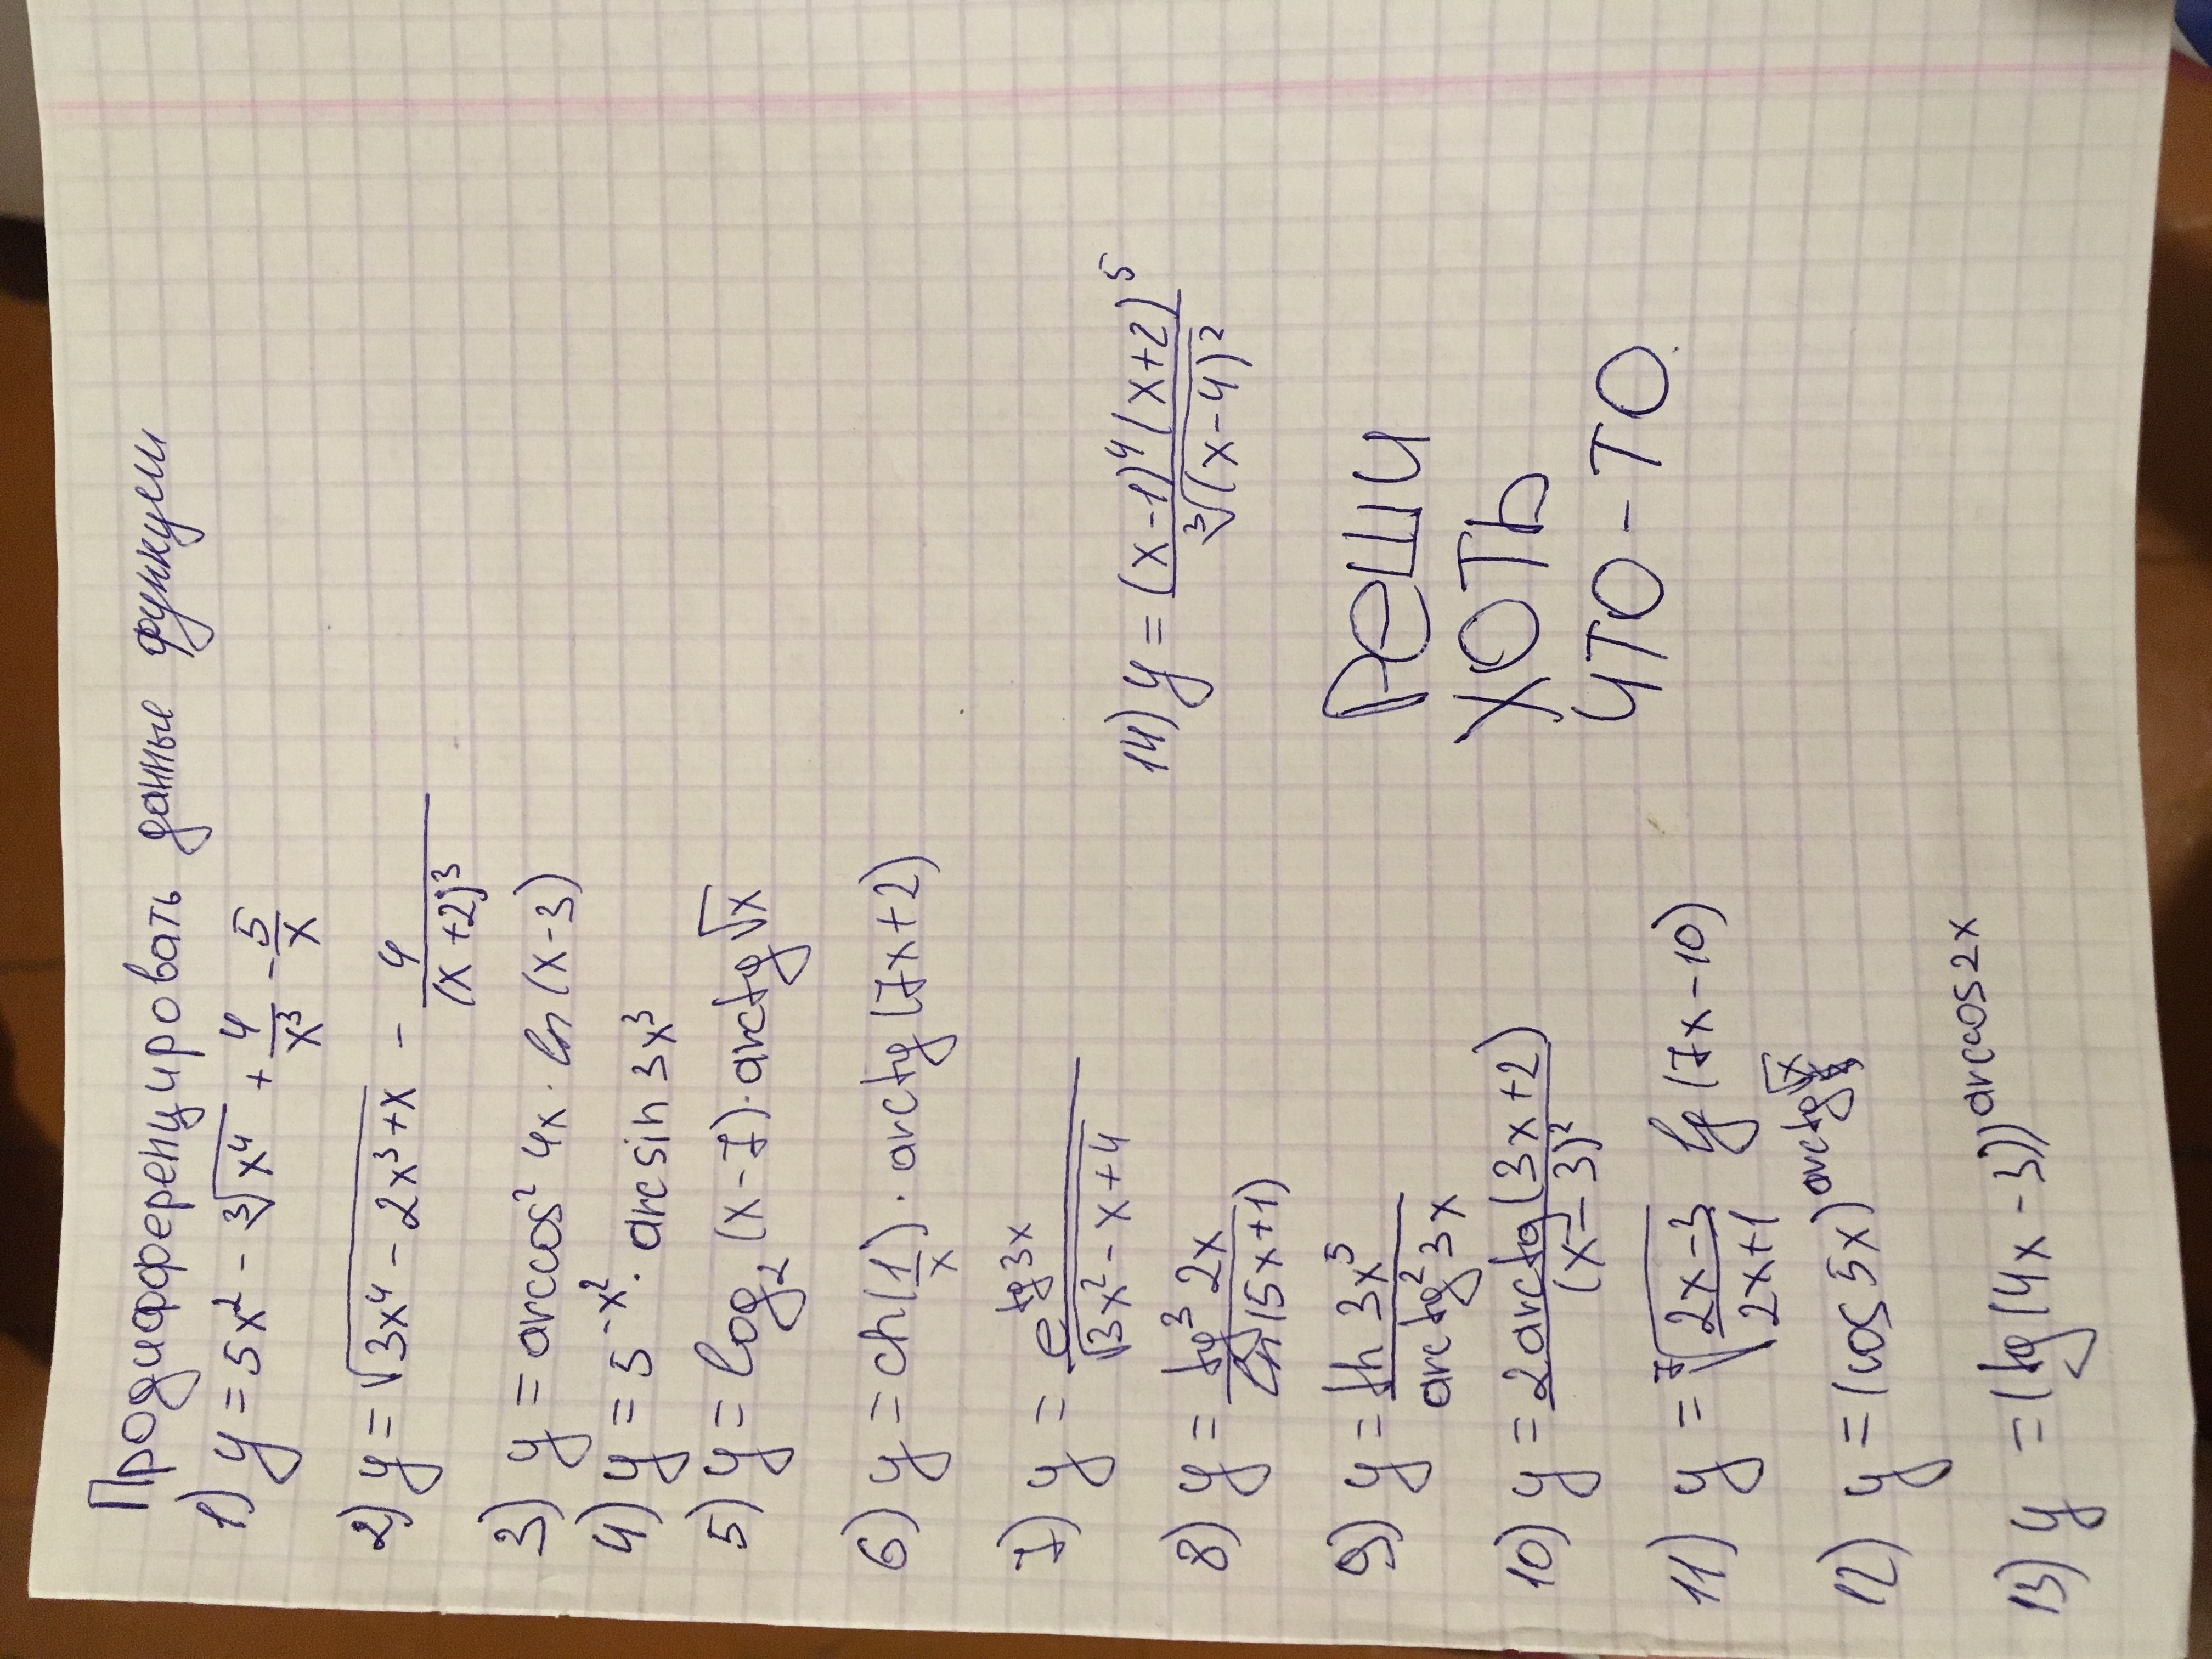 Продифференцировать данные функции
1) y = 5x² - ∛x⁴ + 4/x³ - 5/x
2) y = √(3x⁴ - 2x³ + x) - 4/(x+2)³
3) y = arccos² 4x · ln(x-3)
4) y = 5^(-x²) · arcsin 3x³
5) y = log₂(x-7) · arctg√x
6) y = ch(1/x) · arctg(7x+2)
7) y = e^(tg3x)/√(3x²-x+4)
8) y = tg³ 2x/ln(5x+1)
9) y = th 3x⁵/arctg² 3x
10) y = 2arctg(3x+2)/(x-3)²
11) y = ⁷√((2x-3)/(2x+1)) lg(7x-10)
12) y = (cos 5x)^(arctg√x)
13) y = (tg(4x-3))^(arccos2x)
14) y = (x-1)⁴(x+2)⁵/∛(x-4)²
РеШИ
ХОТЬ
ЧТО-ТО